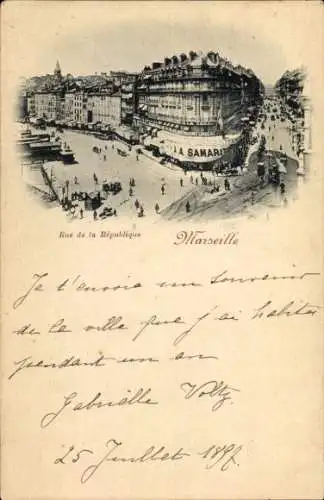 A SAMARI
Rue de la République
Marseille
Je t'envoie un souvenir
de la ville que j'ai habitée
pendant un an
Gabrielle Voltz
25 Juillet 1897